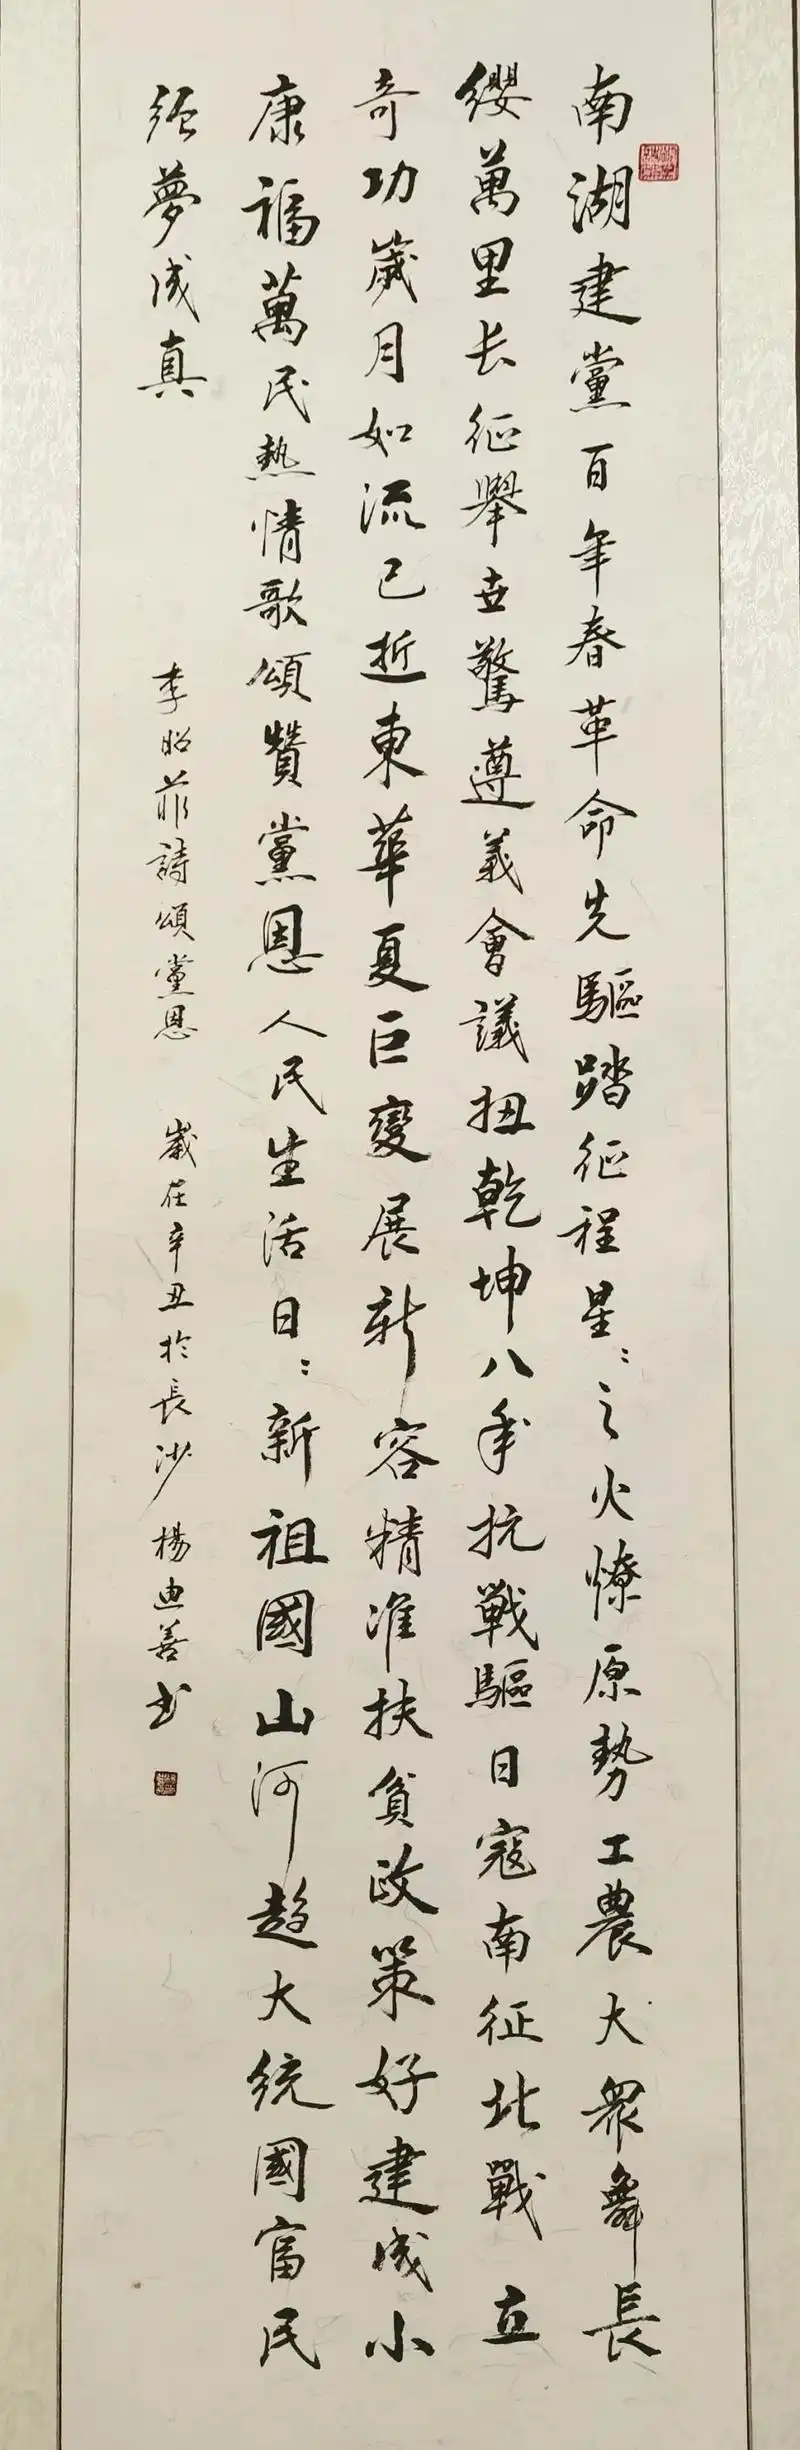 南湖建黨百年春革命先驅踏征程星〻之火燎原勢工農大衆舞長
纓萬里长征舉世驚遵義會議扭乾坤八年抗戰驅日寇南征北戰立
奇功歲月如流已逝東華夏巨變展新容精准扶貧政策好建成小
康福萬民熱情歌頌贊黨恩人民生活日〻新祖國山河趋大統國富民
强夢成真
李昭菲詩頌黨恩 歲在辛丑於長沙 楊迪善书